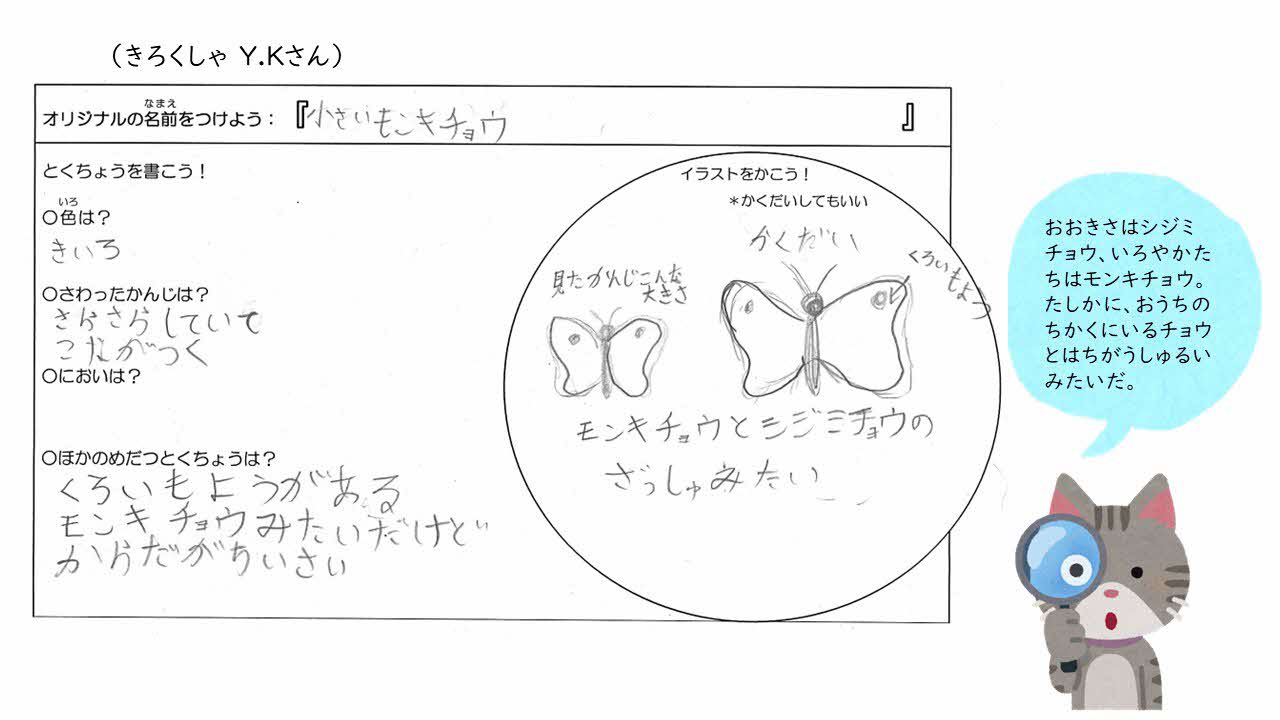 （きろくしゃ Y.Kさん）
なまえ
オリジナルの名前をつけよう：『小さいモンキチョウ』
とくちょうを書こう！
いろ
○色は？
きいろ
○さわったかんじは？
さらさらしていて
こながつく
○においは？
○ほかのめだつとくちょうは？
くろいもようがある
モンキチョウみたいだけど
からだがちいさい
イラストをかこう！
＊かくだいしてもいい
かくだい
くろいもよう
見たかんじこんな
大きさ
モンキチョウとシジミチョウの
ざっしゅみたい
おおきさはシジミ
チョウ、いろやかた
ちはモンキチョウ。
たしかに、おうちの
ちかくにいるチョウ
とはちがうしゅるい
みたいだ。